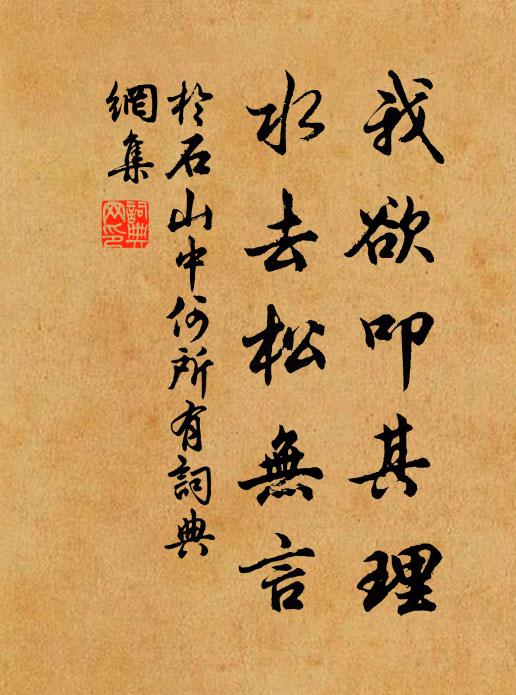 我欲叩其理
水去松無言
於石山中何所有詞典
網集
詞典網印